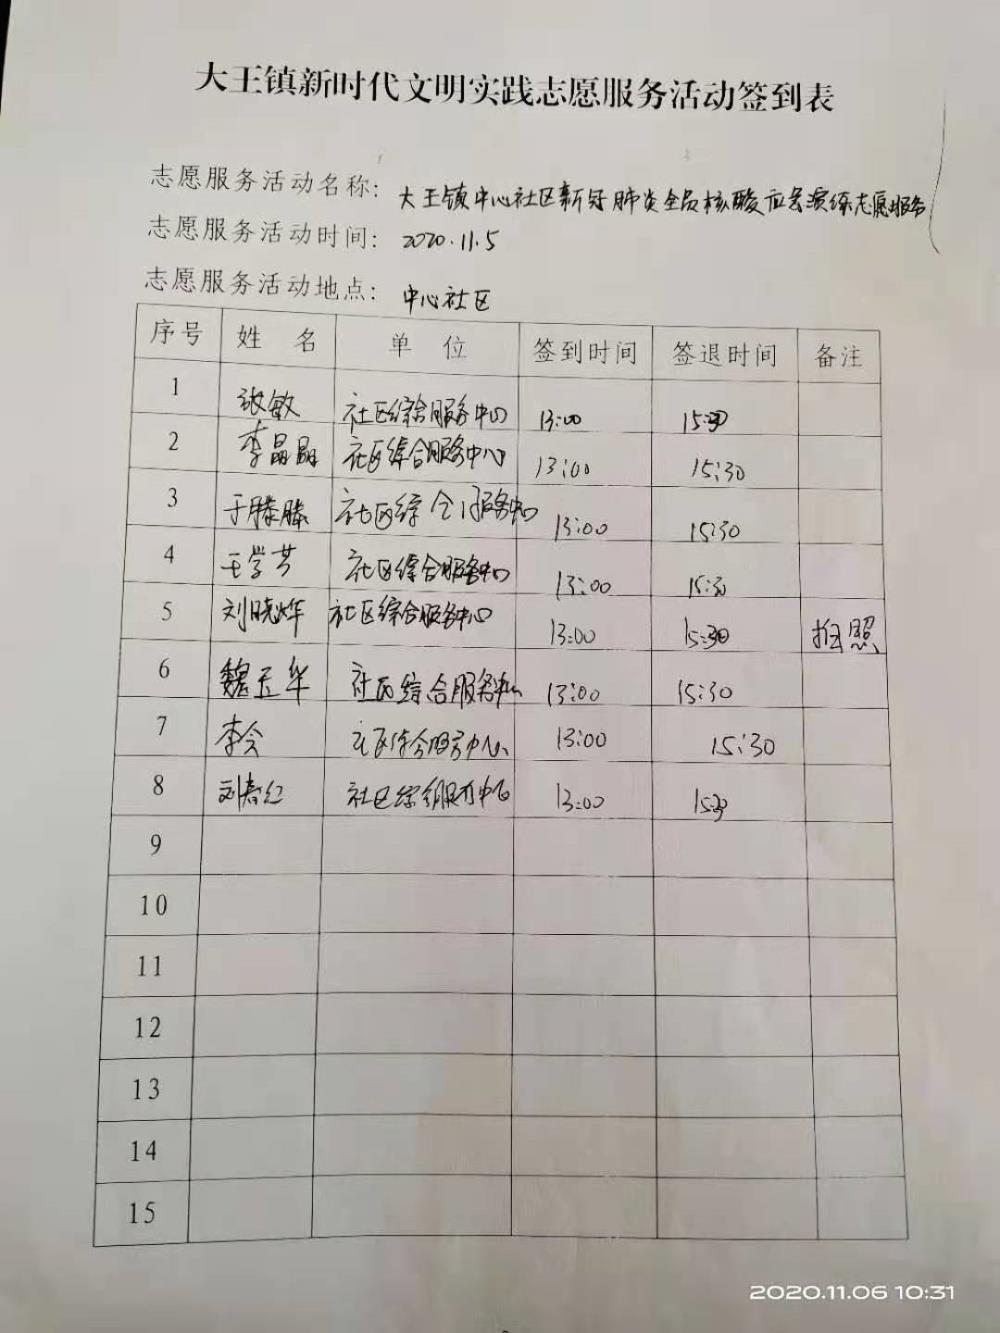 大王镇新时代文明实践志愿服务活动签到表
志愿服务活动名称: 大王镇中心社区新冠肺炎全员核酸应急演练志愿服务
志愿服务活动时间: 2020.11.5
志愿服务活动地点: 中心社区
序号 姓 名 单 位 签到时间 签退时间 备注
1 张敏 社区综合服务中心 13:00 15:30
2 李晶晶 社区综合服务中心 13:00 15:30
3 于滕滕 社区综合服务中心 13:00 15:30
4 王学芳 社区综合服务中心 13:00 15:30
5 刘晓烨 社区综合服务中心 13:00 15:30 拍照
6 魏玉华 社区综合服务中心 13:00 15:30
7 李令 社区综合服务中心 13:00 15:30
8 刘春红 社区综合服务中心 13:00 15:30
9
10
11
12
13
14
15
2020.11.06 10:31